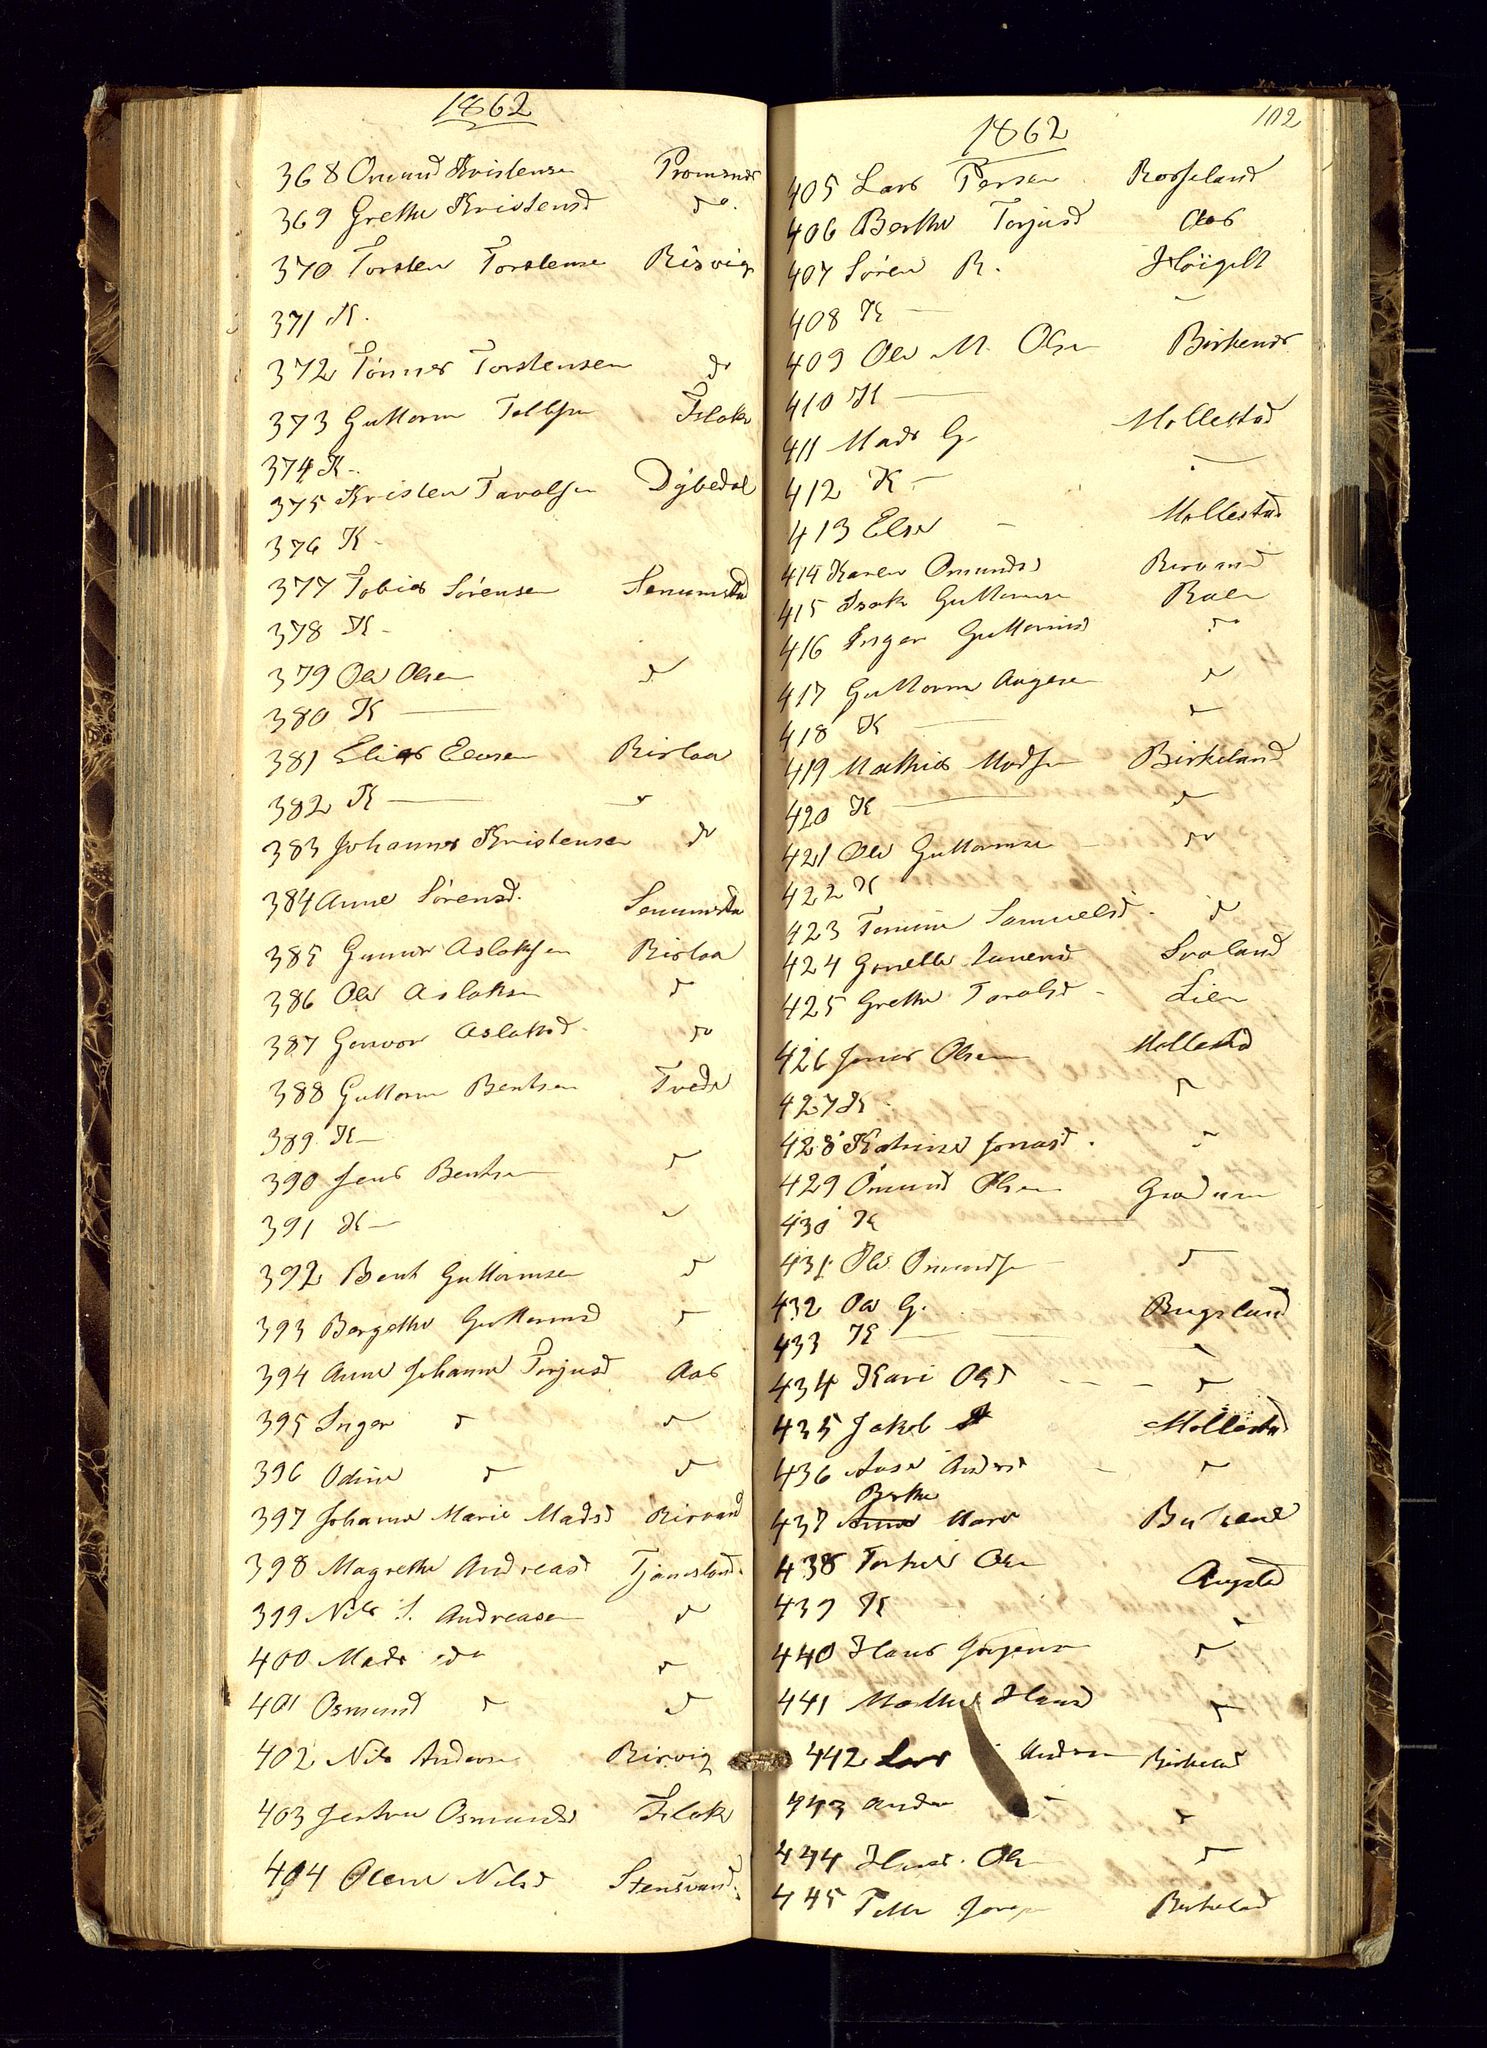 1862
368 Omund Kristensen
369 Grethe Kristensd do.
370 Torsten Torstensen Risvig
371 K.
372 Tønnes Torstensen do
373 Guttorm Tellefsen Flak
374 K.
375 Kristen Taralsen Dybedal
376 K
377 Tobias Sørensen Senumstad
378 K
379 Ole Olsen d
380 K —
381 Elias Elesen Rislaa
382 K — d
383 Johannes Kristensen do
384 Anne Sørensd. Senumsta
385 Gunder Aslaksen Rislaa
386 Ole Aslaksen d
387 Gunvor Aslaksd do
388 Guttorm Bentsen Tvede
389 K
390 Jens Bentsen d
391 K — d
392 Bent Guttormsen d
393 Bergethe Guttormsd d
394 Anne Johanne Torjusd Aas
395 Inger d d
396 Odine d d
397 Johanne Marie Madsd Risvand
398 Magrethe Andreasd Tjameland
399 Nils S. Andreasen d
400 Mads do d
401 Osmund d d
402 Nils Andersen Risvig
403 Osmundsd Flak
404 Olene Nilsd Stensvand
102
1862
405 Lars Persen Rosseland
406 Berthe Torjusd Aas
407 Søren R. Høigilt
408 K —
409 Ole M. Olsen Birkenes
410 K —
411 Mads G. Mollestad
412 K —
413 Else — Mollestad
414 Karen Omundsd Risvand
415 Isak Guttormsen Roen
416 Inger Guttormsd do
417 Guttorm Aagesen d
418 K — d
419 Mathias Madsen Birkeland
420 K — d
421 Ole Guttormsen do
422 K
423 Tomine Samuelsd. d
424 Gunelle Svaland
425 Grethe Taralsd Lien
426 Jonas Olsen Mollestad
427 K. d
428 Katrine Jonasd. d
429 Omund Olsen
430 K
431 Ole Omundsen d
432 Ole G. Bugsland
433 K — d
434 Kari Olsd d
435 Jakob Mollestad
436 Aase Andersd d
Berthe
437 Anne Marie Birkeland
438 Torkild Olsen
439 K d
440 Hans Jørgensen d
441 Marthe Hansd d
442 Lars Andersen Birkelad
443 Anders d
444 Hans Olsen d
445 Birkelad